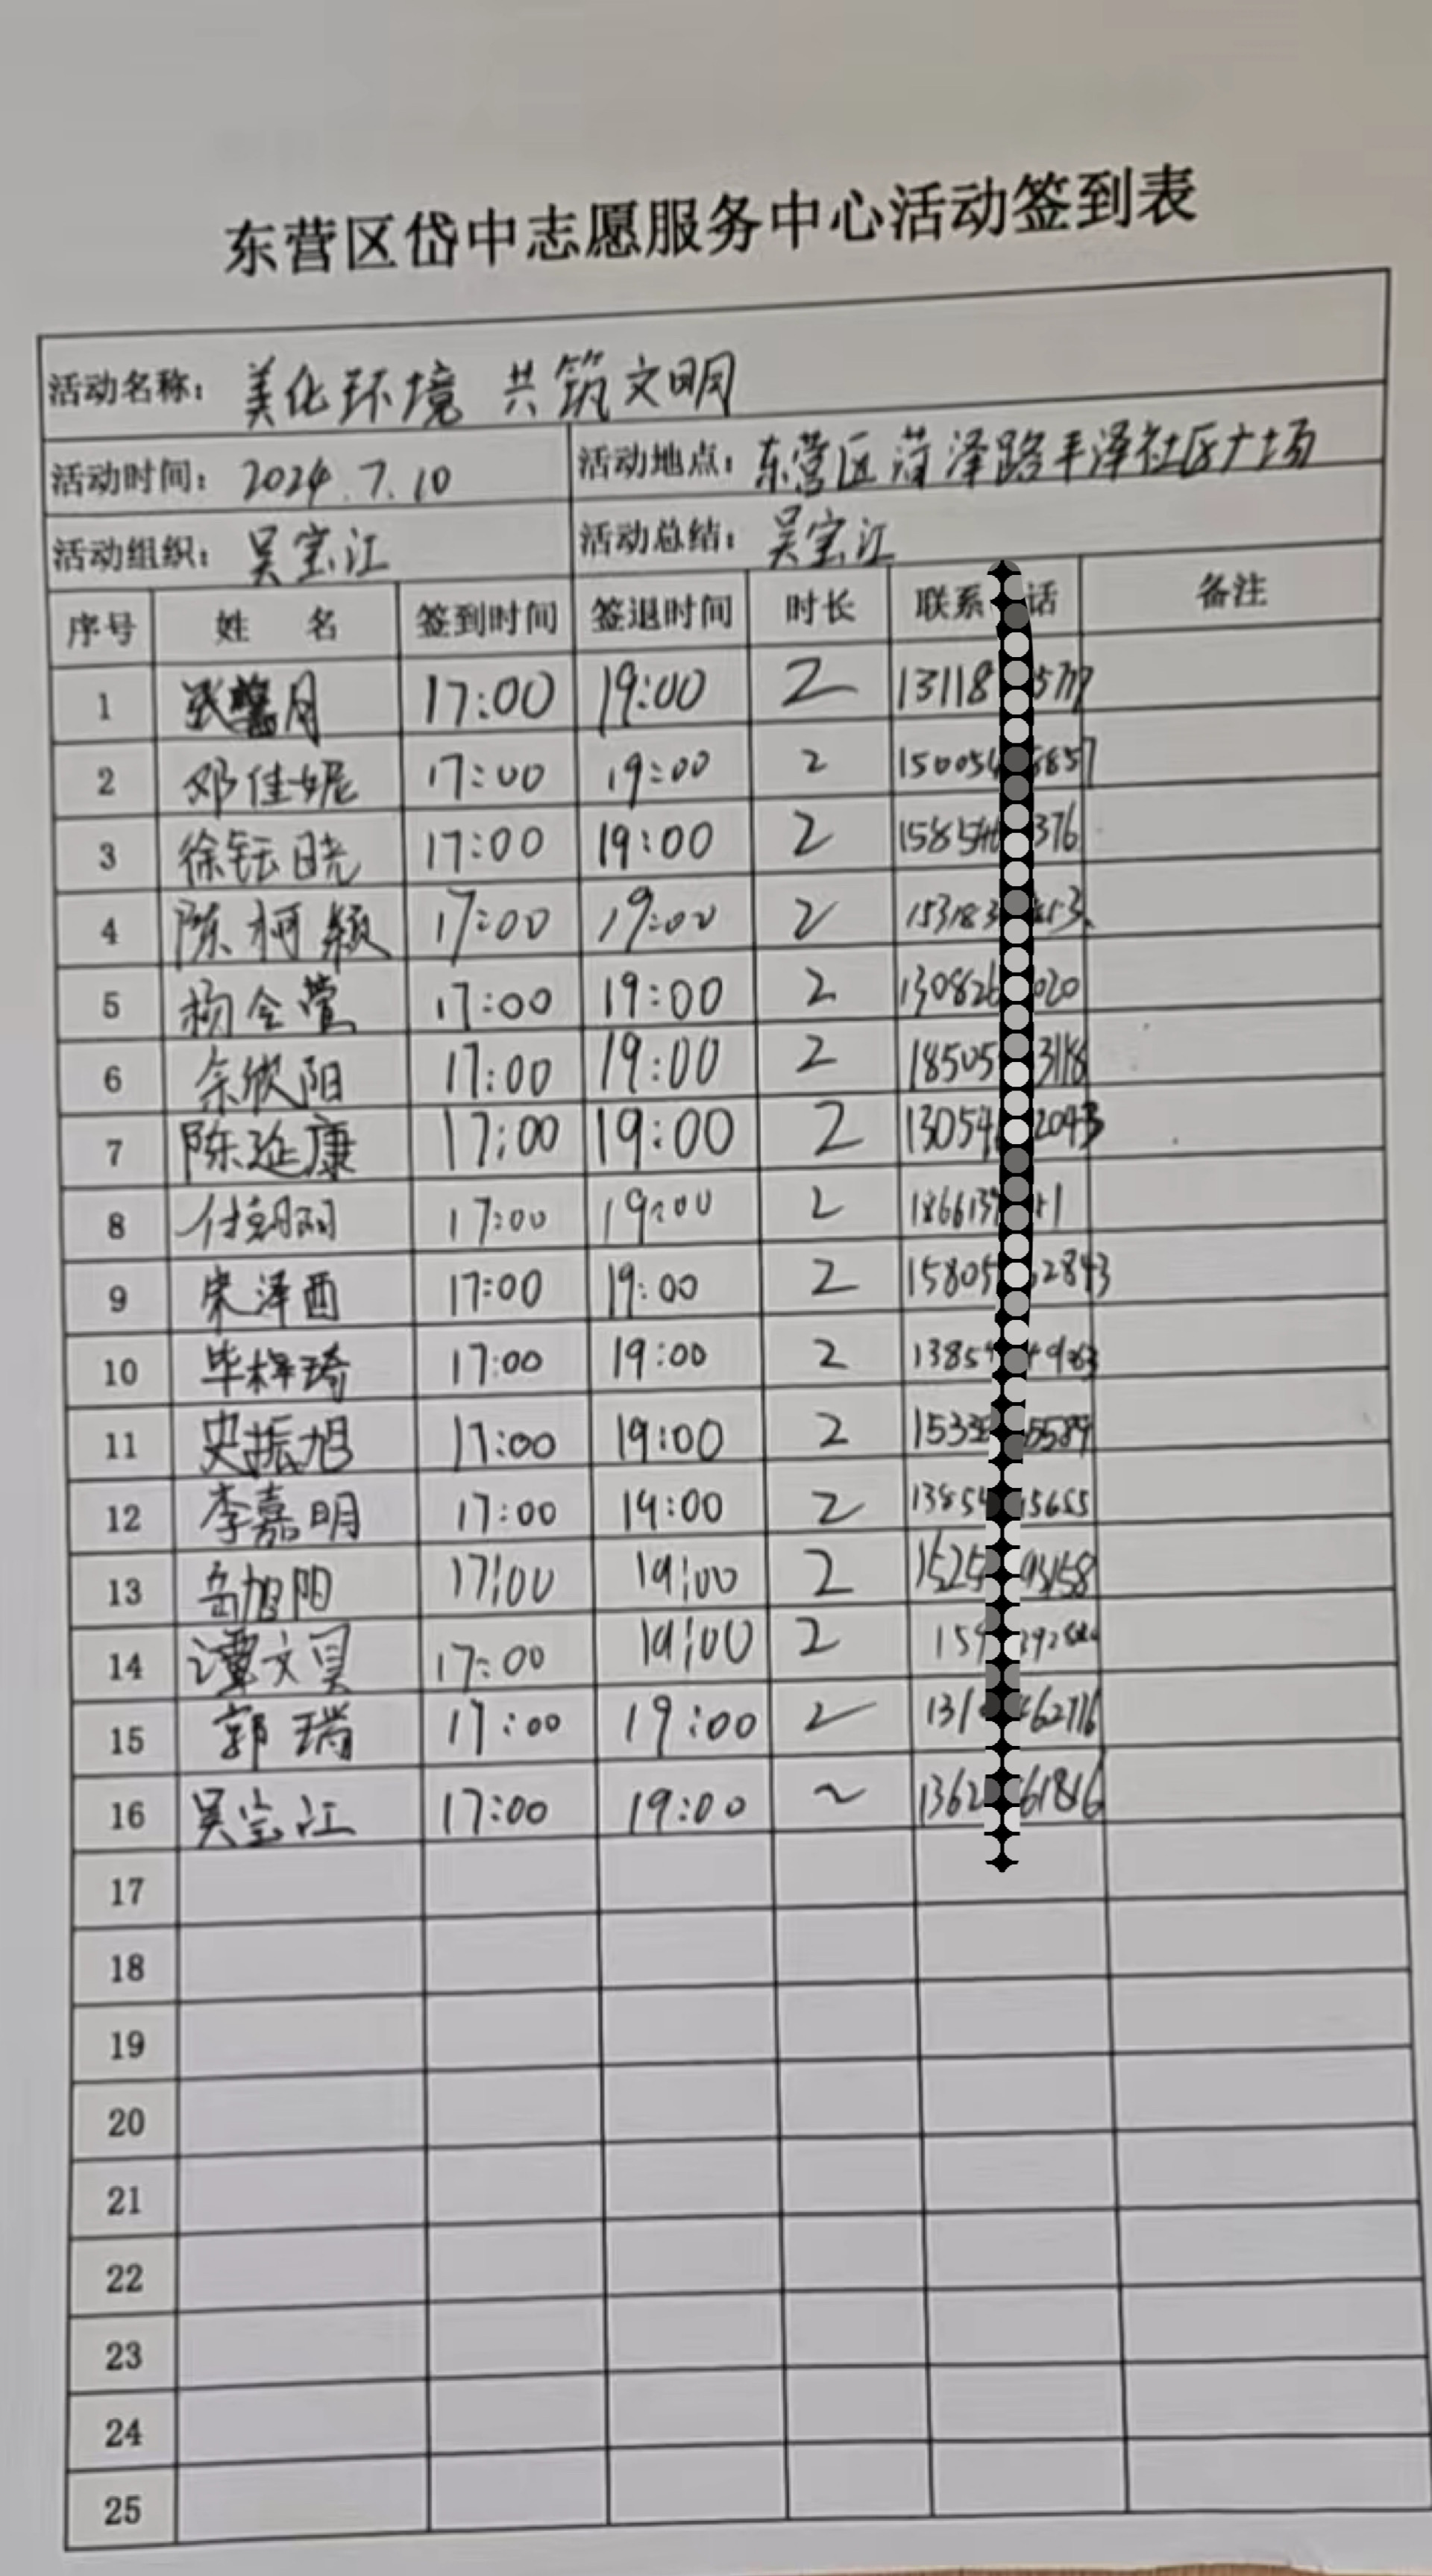 东营区岱中志愿服务中心活动签到表
活动名称： 美化环境 共筑文明
活动时间： 2024.7.10 活动地点： 东营区菏泽路丰泽社区广场
活动组织： 吴宝江 活动总结： 吴宝江
序号 姓 名 签到时间 签退时间 时长 联系 话 备注
1 张馨月 17:00 19:00 2 13118 577
2 邓佳妮 17:00 19:00 2 15005 6857
3 徐钰晓 17:00 19:00 2 158546 376
4 陈柯颖 17:00 19:00 2 153183
5 杨令萱 17:00 19:00 2 130826 020
6 余欣阳 17:00 19:00 2 18505 3118
7 陈延康 17:00 19:00 2 13054 2043
8 17:00 19:00 2 186613 1
9 宋泽西 17:00 19:00 2 15805 2843
10 毕梓琦 17:00 19:00 2 1385
11 史振旭 17:00 19:00 2 1533 5589
12 李嘉明 17:00 19:00 2 13854 5655
13 岳旭阳 17:00 19:00 2 1525 458
14 谭文昊 17:00 19:00 2 15
15 郭瑞 17:00 19:00 2 131 62776
16 吴宝江 17:00 19:00 2 1362 61816
17
18
19
20
21
22
23
24
25